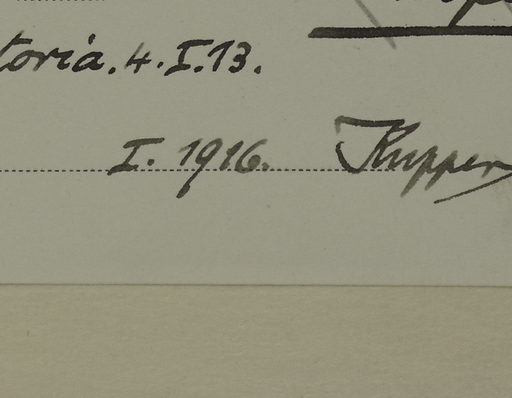 toria. 4. I. 13.
I. 1916. Kupper